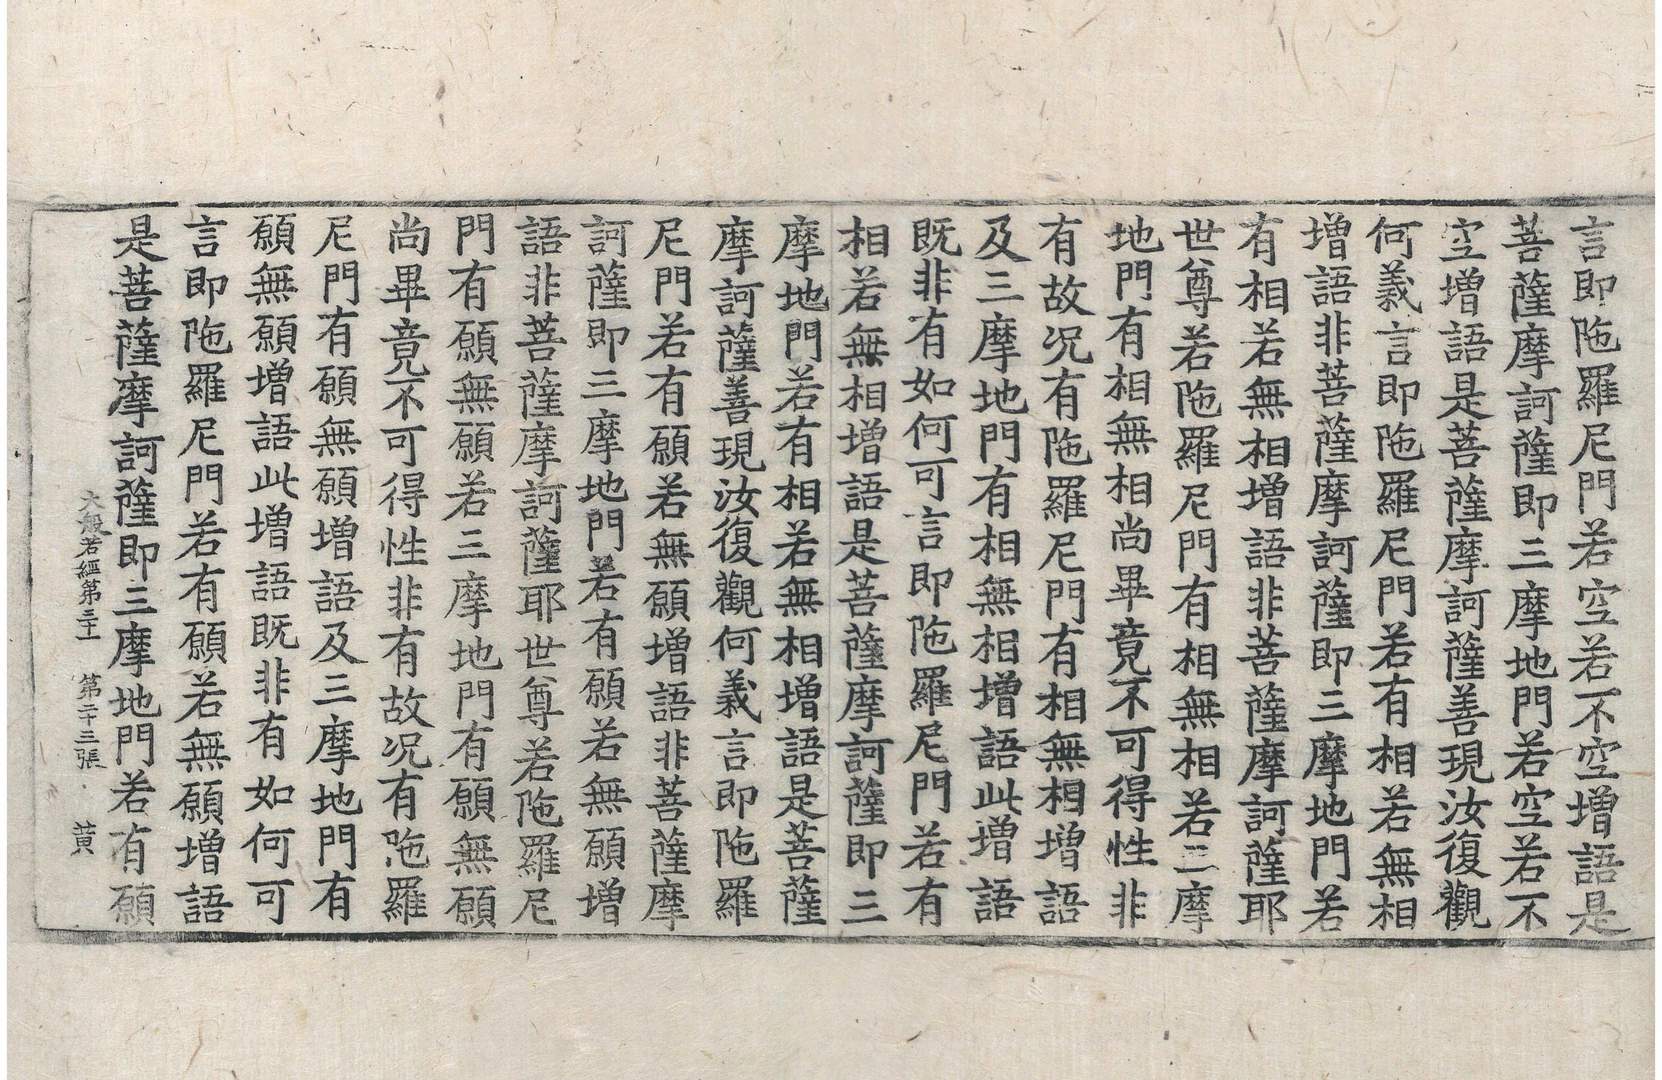 言即陁羅尼門若空若不空增語是
菩薩摩訶薩即三摩地門若空若不
空增語是菩薩摩訶薩善現汝復觀
何義言即陁羅尼門若有相若無相
增語非菩薩摩訶薩即三摩地門若
有相若無相增語非菩薩摩訶薩耶
世尊若陁羅尼門有相無相若三摩
地門有相無相尚畢竟不可得性非
有故况有陁羅尼門有相無相增語
及三摩地門有相無相增語此增語
既非有如何可言即陁羅尼門若有
相若無相增語是菩薩摩訶薩即三
摩地門若有相若無相增語是菩薩
摩訶薩善現汝復觀何義言即陁羅
尼門若有願若無願增語非菩薩摩
訶薩即三摩地門若有願若無願增
語非菩薩摩訶薩耶世尊若陁羅尼
門有願無願若三摩地門有願無願
尚畢竟不可得性非有故况有陁羅
尼門有願無願增語及三摩地門有
願無願增語此增語既非有如何可
言即陁羅尼門若有願若無願增語
是菩薩摩訶薩即三摩地門若有願
大般若經第三十一 第二十三張 黃